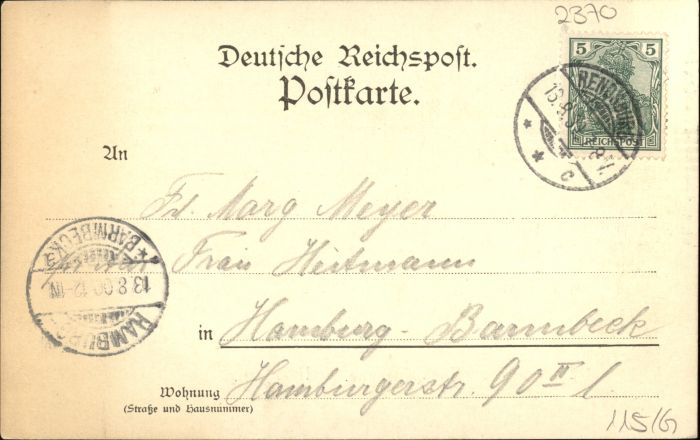 2370
Deutsche Reichspost.
Postkarte.
5 5
REICHSPOST
RENDSBURG
13.8.
8-
c
An
Frl. Marg Meyer
Frau Heitmann
in Hamburg-Barmbeck
Hamburgerstr. 90 II l.
Wohnung
(Straße und Hausnummer)
HAMBURG
13.8.00.12-1N
* BARMBECK a
115/G